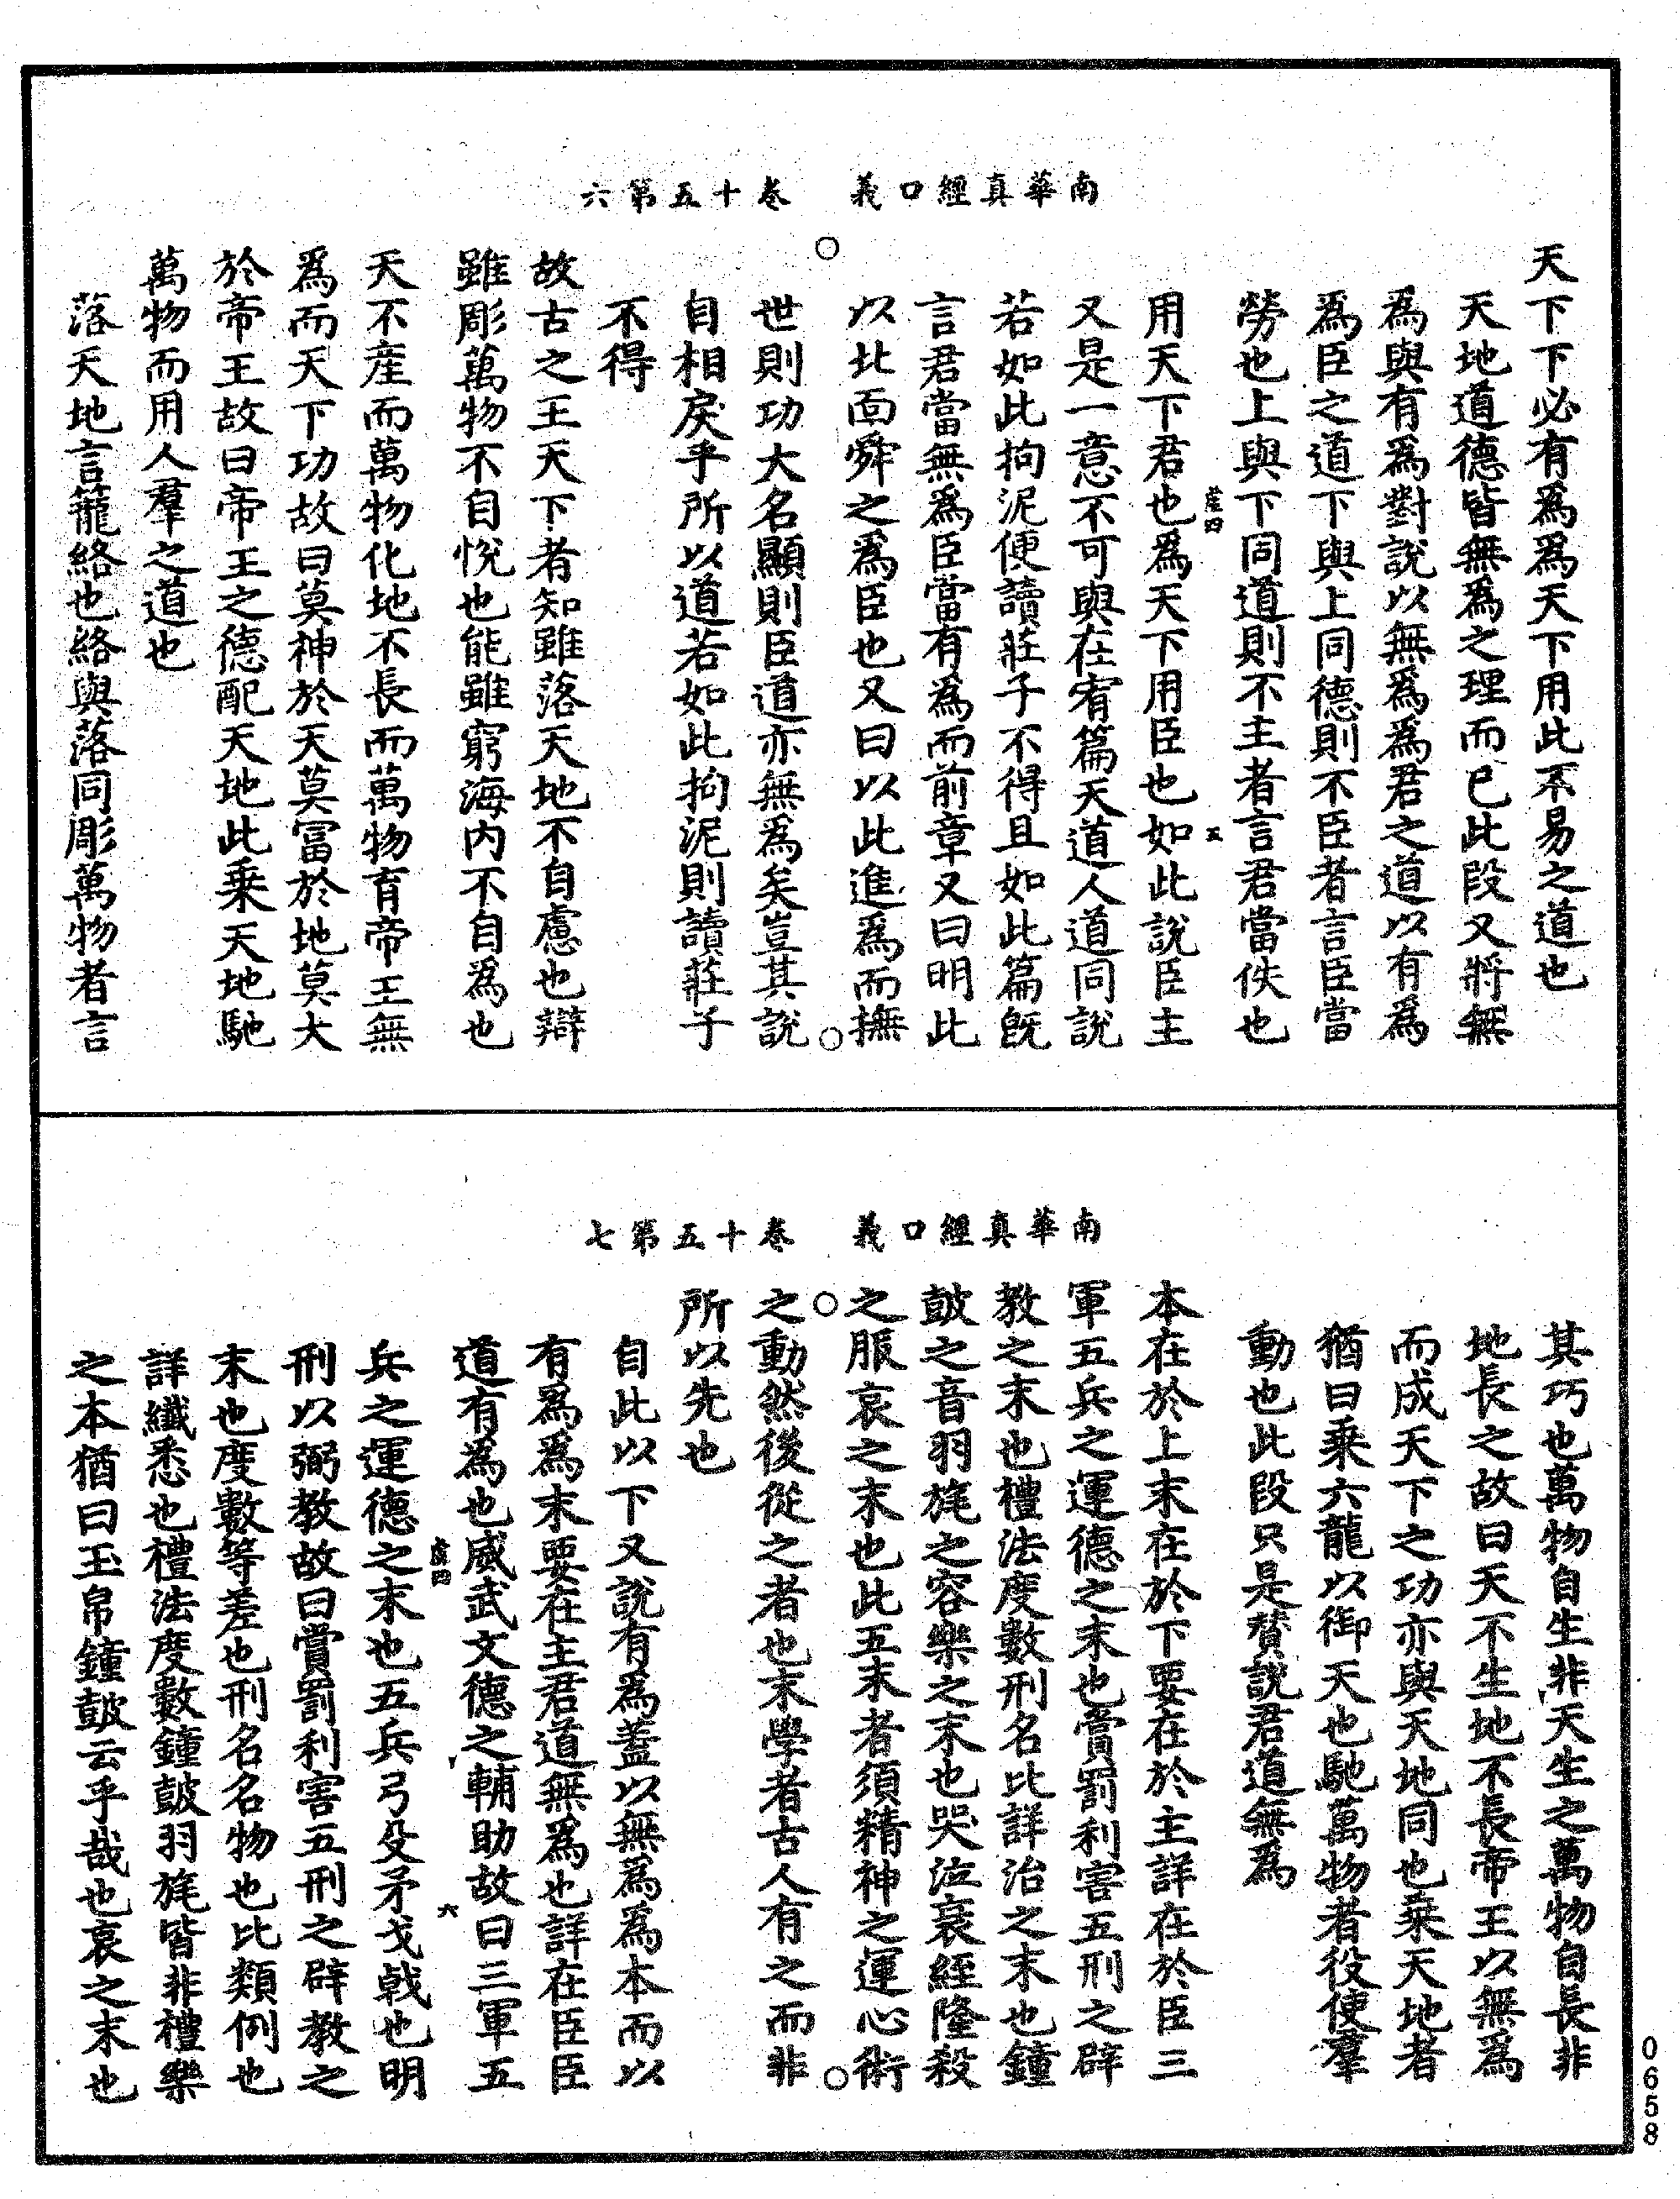 南華真經口義　卷十五第六
天下下必有為為天下用此不易之道也
天地道德皆無為之理而已此段又將無
為與有為對說以無為為君之道以有為
為臣之道下與上同德則不臣者言臣當
勞也上與下同道則不主者言君當佚也
用天下君也為天下用臣也如此說臣主
又是一意不可與在宥篇天道人道同說
若如此拘泥便讀莊子不得且如此篇既
言君當無為臣當有為而前章又曰明此
以北面舜之為臣也又曰以此進為而撫
世則功大名顯則臣道亦無為矣豈其說
自相戾乎所以道若如此拘泥則讀莊子
不得
故古之王天下者知雖落天地不自慮也辯
雖彫萬物不自悅也能雖窮海內不自為也
天不産而萬物化地不長而萬物育帝王無
為而天下功故曰莫神於天莫富於地莫大
於帝王故曰帝王之德配天地此乘天地馳
萬物而用人羣之道也
落天地言籠絡也絡與落同彫萬物者言
南華真經口義　卷十五第七
其巧也萬物自生非天生之萬物自長非
地長之故曰天不生地不長帝王以無為
而成天下之功亦與天地同也乘天地者
猶曰乘六龍以御天也馳萬物者役使羣
動也此段只是贊說君道無為
本在於上末在於下要在於主詳在於臣三
軍五兵之運德之末也賞罰利害五刑之辟
教之末也禮法度數刑名比詳治之末也鐘
鼓之音羽旄之容樂之末也哭泣衰絰隆殺
之服哀之末也此五末者須精神之運心術
之動然後從之者也末學者古人有之而非
所以先也
自此以下又說有為蓋以無為為本而以
有為為末要在主君道無為也詳在臣臣
道有為也威武文德之輔助故曰三軍五
兵之運德之末也五兵弓殳矛戈戟也明
刑以弼教故曰賞罰利害五刑之辟教之
末也度數等差也刑名名物也比類例也
詳纖悉也禮法度數鐘鼓羽旄皆非禮樂
之本猶曰玉帛鐘鼓云乎哉也哀之末也
0658